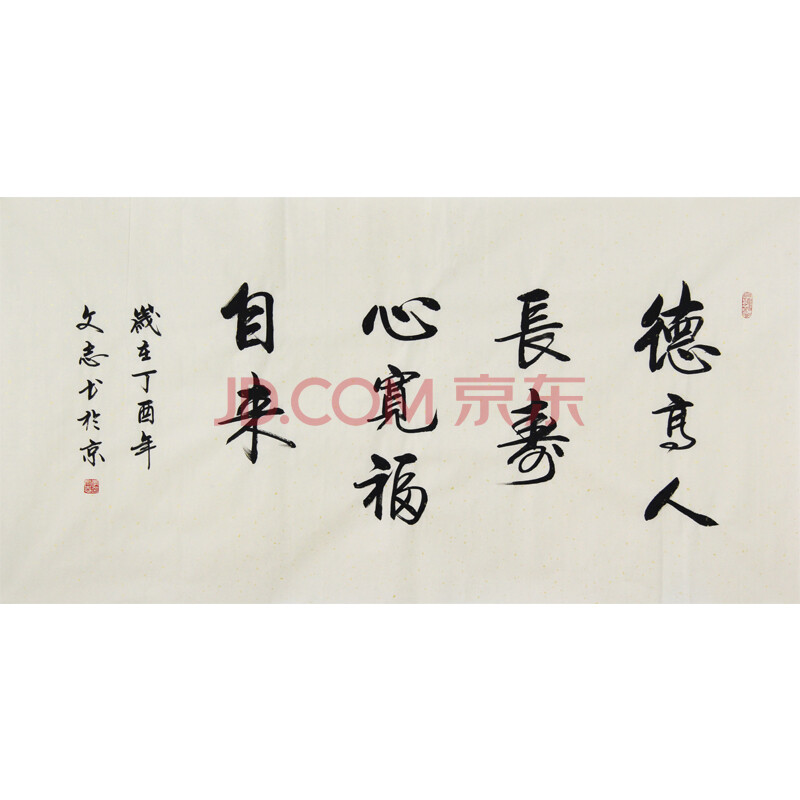 德高人
長壽
心寬福
自来
歲在丁酉年
文志书於京
JD.COM 京东